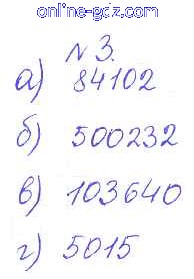 online-gdz.com
№ 3.
а) 84102
б) 500232
в) 103640
г) 5015